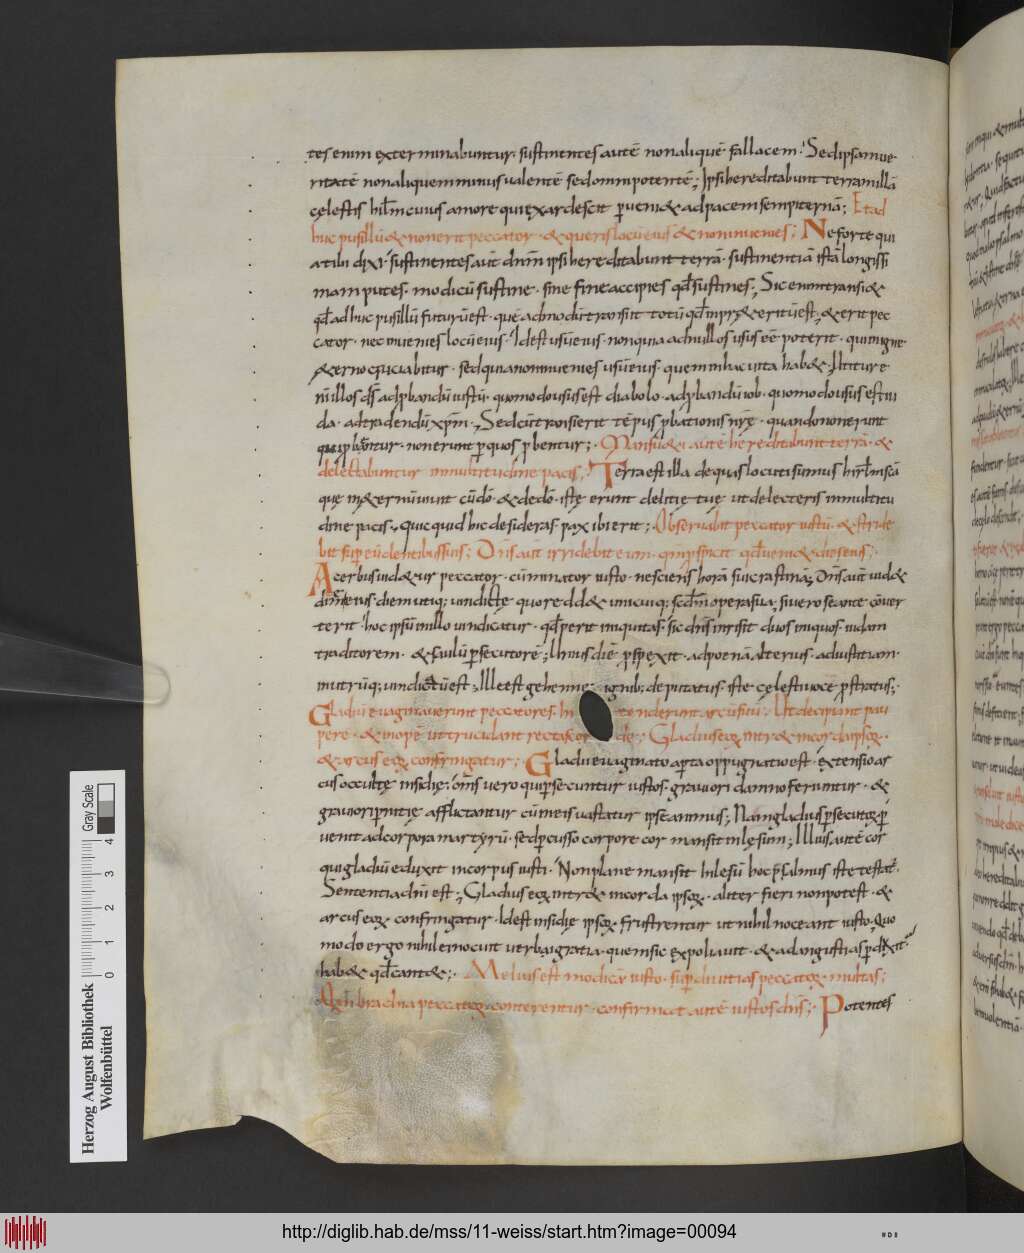 tes enim exterminabuntur. sustinentes autē non aliquē fallacem. Sed ipsam ue
ritatē non aliquem minus ualentē sed omnipotentē; Ipsi hereditabunt terram illā
cęlestis hierlm cuius amore quis exardescit ꝑuenit & ad pacem sempiternā; Et ad
huc pusillū & non erit peccator. & queris locū eius & non inuenies; Ne forte qui
a tibi dixi. sustinentes aut̄ dnm̄ ipsi hereditabunt terrā. sustinentiā istā longissi
mam putes. modicū sustine. sine fine accipies qđ sustines; Sic enim transi&
qđ adhuc pusillū futurū est. que admodū transiit totū qđ
cator. nec inuenies locū eius. Id est usū eius. non quia ad nullos usus eē poterit. qui in igne
&erno cruciabitur. sed quia non inuenies usū eius. quem in hac uita hab&. Ut iture
in illos ds̄ ad ꝓbandū iustū. quomodo usus est diabolo. ad ꝓbandū iob. quomodo usus est iu
da. ad tradendū xpm̄; Sed cū transierit tēpus ꝓbationis nr̄ę. quando non erunt
qui ꝓbentur. non erunt ꝑ quos ꝓbentur; Mansu&i autē hereditabunt terrā. &
delectabuntur in multitudine pacis; Terra est illa de qua locuti sumus hierlm scā
quę in &ernū uiuit cū dō. & de dō. istę erunt delicię tuę ut delecteris in multitu
dine pacis; quicquid hic desideras pax ibi erit; Obseruabit peccator iustū. & stride
bit suꝑ eū dentibus suis; Dns̄ aut̄ irridebit eum. qm̄ ꝓspicit qđ ueni& dies eius;
Acerbus uid&ur peccator. cūminator iusto. nesciens horā sui crastinā; Dns̄ aut̄ uid&
diem eius. diem utiq; uindictę quo redd& unicuiq; scđm opera sua; si uero se ante cōuer
terit. hoc ipsū in illo uindicatur. qđ perit iniquitas. sic dns̄ irrisit duos iniquos. iudam
traditorem. & saulū ꝑsecutorē; Unius diē ꝓspexit. ad poenā. alterius. ad iustitiam.
in utrūq; uindictū est; Ille est gehennę ignib; deputatus. iste cęlesti uoce ꝓstratus;
Gladiū euaginauerunt peccatores. In tenderunt arcū suū; Ut decipiant pau
perē. & inopē ut trucidant rectos cor de; Gladius eoꝝ intr& in corda ipsoꝝ.
& arcus eoꝝ confringatur; Gladiū euaginato aꝑta oppugnatio est. extensio ar
cus occultę insidię; om̄s uero qui ꝑsecuntur iustos. grauiori damno feriuntur. &
grauiori pernitię afflictantur cū in eis uastatur ipse animus; Nam gladius ꝑsecutoꝝ ꝑ
uenit ad corpora martyrū. sed ꝑcusso corpore cor mansit inlęsum; Illius autē cor
qui gladiū eduxit in corpus iusti. Non plane mansit inlesū hoc psalmus iste testat̄.
Sententia dn̄i est; Gladius eoꝝ intr& in corda ipsoꝝ. aliter fieri non potest. &
arcus eoꝝ confringatur. Id est insidię ipsoꝝ frustrentur ut nihil noceant iusto. Quo
modo ergo nihil ei nocuit uerbi gratia. quem sic expoliauit. & ad angustias ꝑduxit.
hab& qđ cant&; Melius est modicū iusto. suꝑ diuitias peccatoꝝ multas;
Qm̄ brachia peccatoꝝ conterentur. confirmat autē iustos dns̄; Potentes
Herzog August Bibliothek
Wolfenbüttel
Gray Scale
0 1 2 3 4
http://diglib.hab.de/mss/11-weiss/start.htm?image=00094